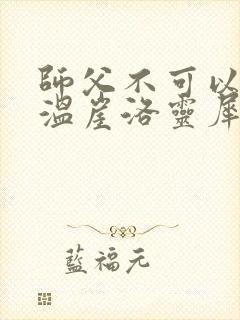 師父不可以
溫崖洛靈犀
藍福元